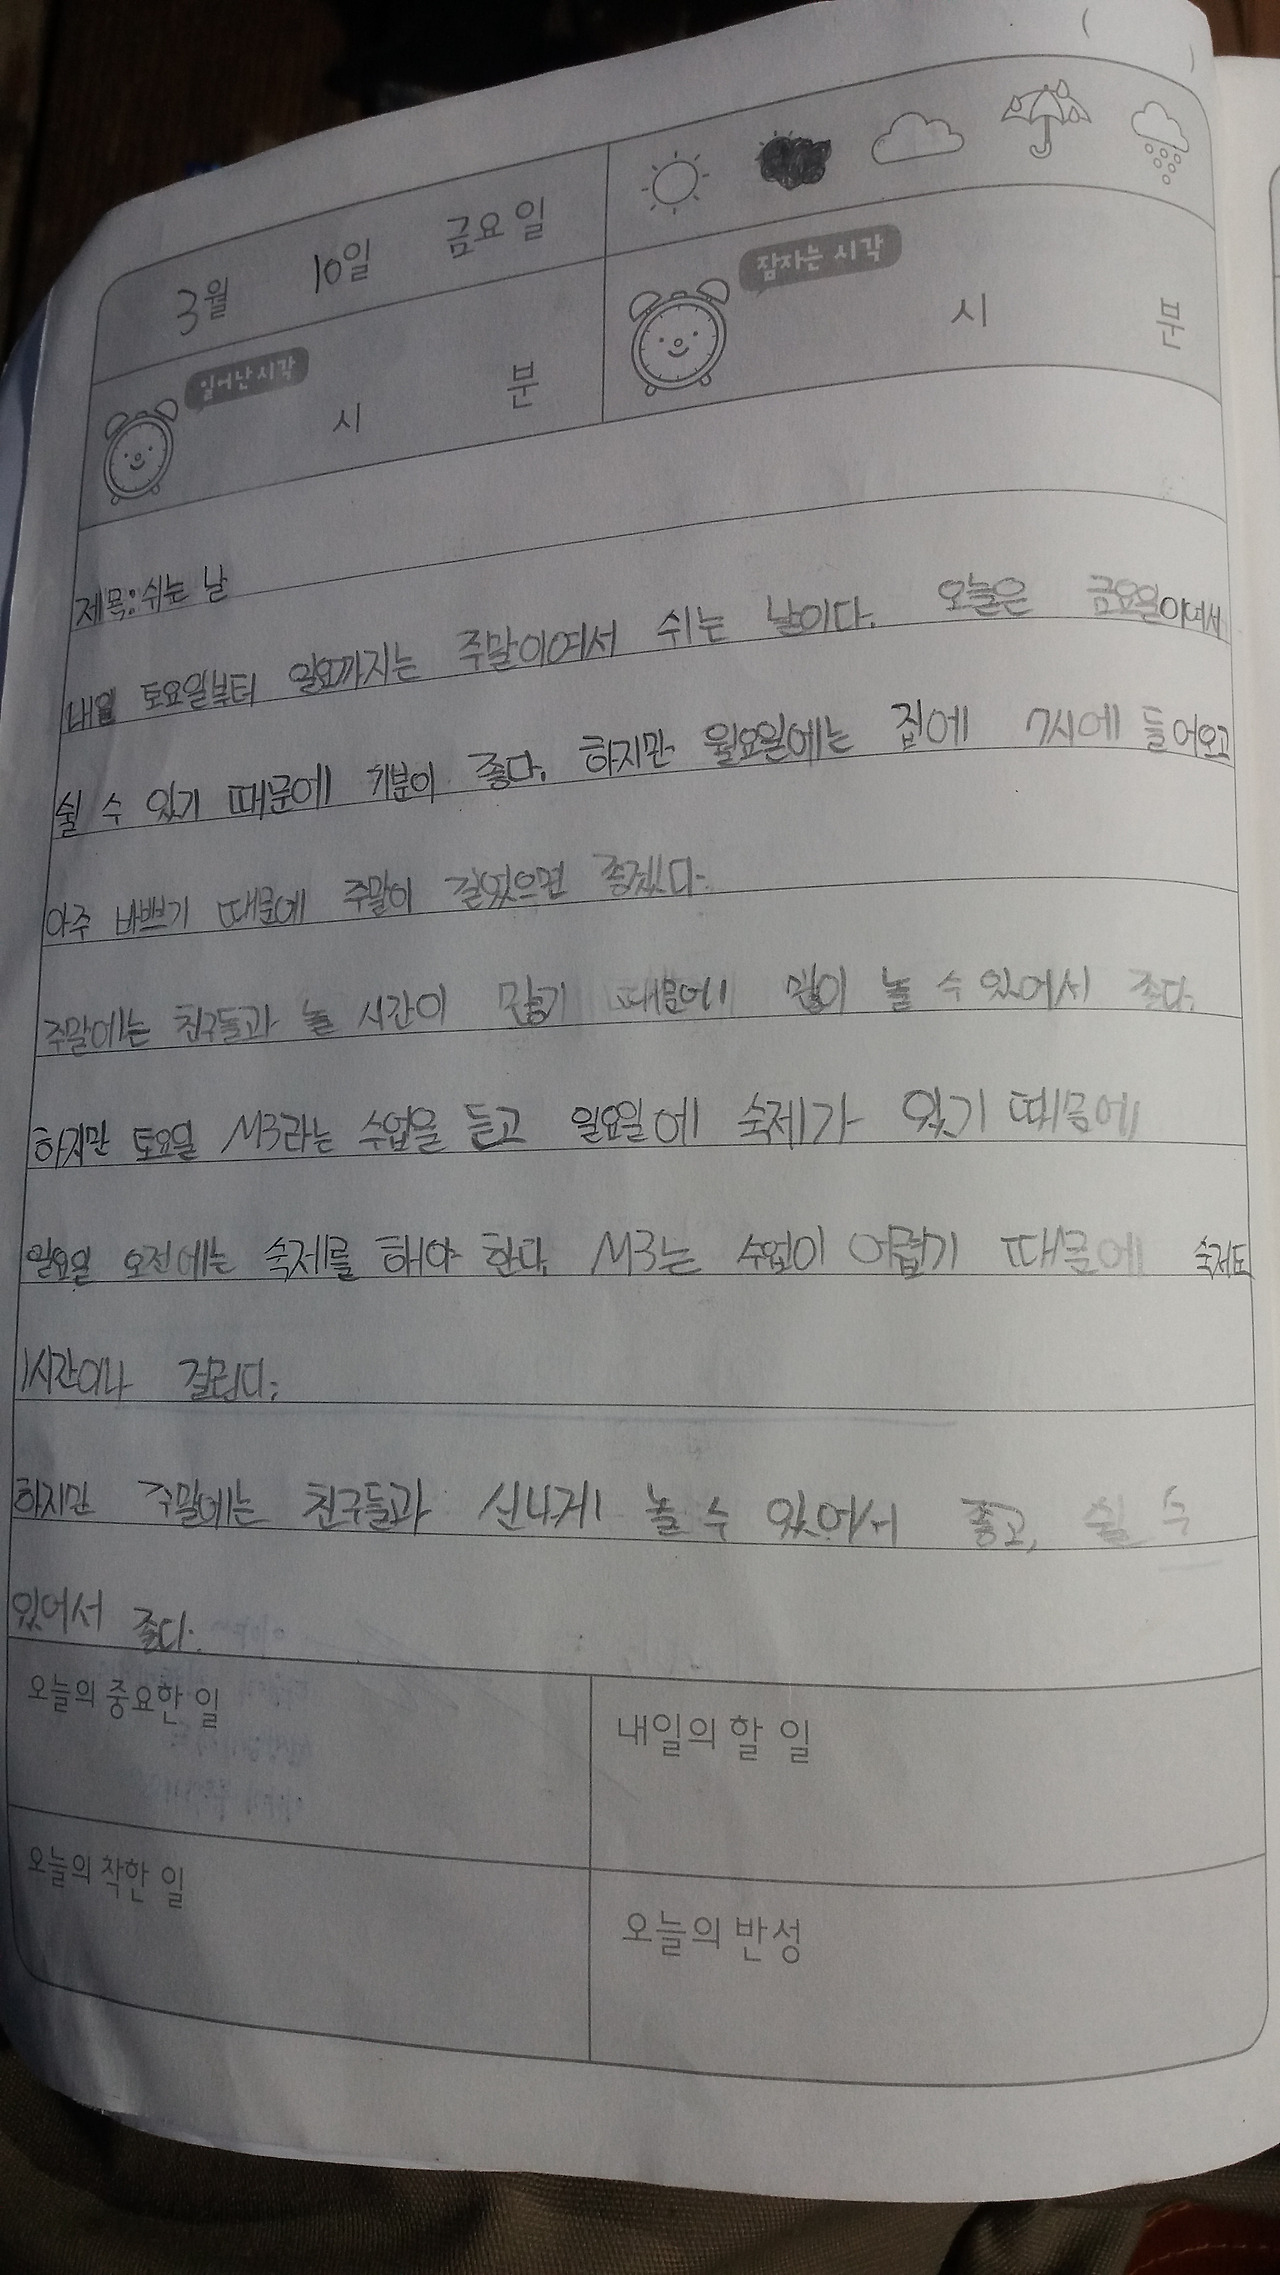 3월 10일 금요일
일어난시각 시 분
잠자는 시각 시 분
제목:쉬는 날
내일 토요일부터 일요까지는 주말이여서 쉬는 날이다. 오늘은 금요일이여서
쉴 수 있기 때문에 기분이 좋다. 하지만 월요일에는 집에 7시에 들어오고
아주 바쁘기 때문에 주말이 길었으면 좋겠다.
주말에는 친구들과 놀 시간이 많기 때문에 많이 놀 수 있어서 좋다.
하지만 토요일 M3라는 수업을 듣고 일요일에 숙제가 있기 때문에
일요일 오전에는 숙제를 해야 한다. M3는 수업이 어렵기 때문에 숙제도
1시간이나 걸린다.
하지만 주말에는 친구들과 신나게 놀 수 있어서 좋고, 쉴 수
있어서 좋다.
오늘의 중요한 일
내일의 할 일
오늘의 착한 일
오늘의 반성